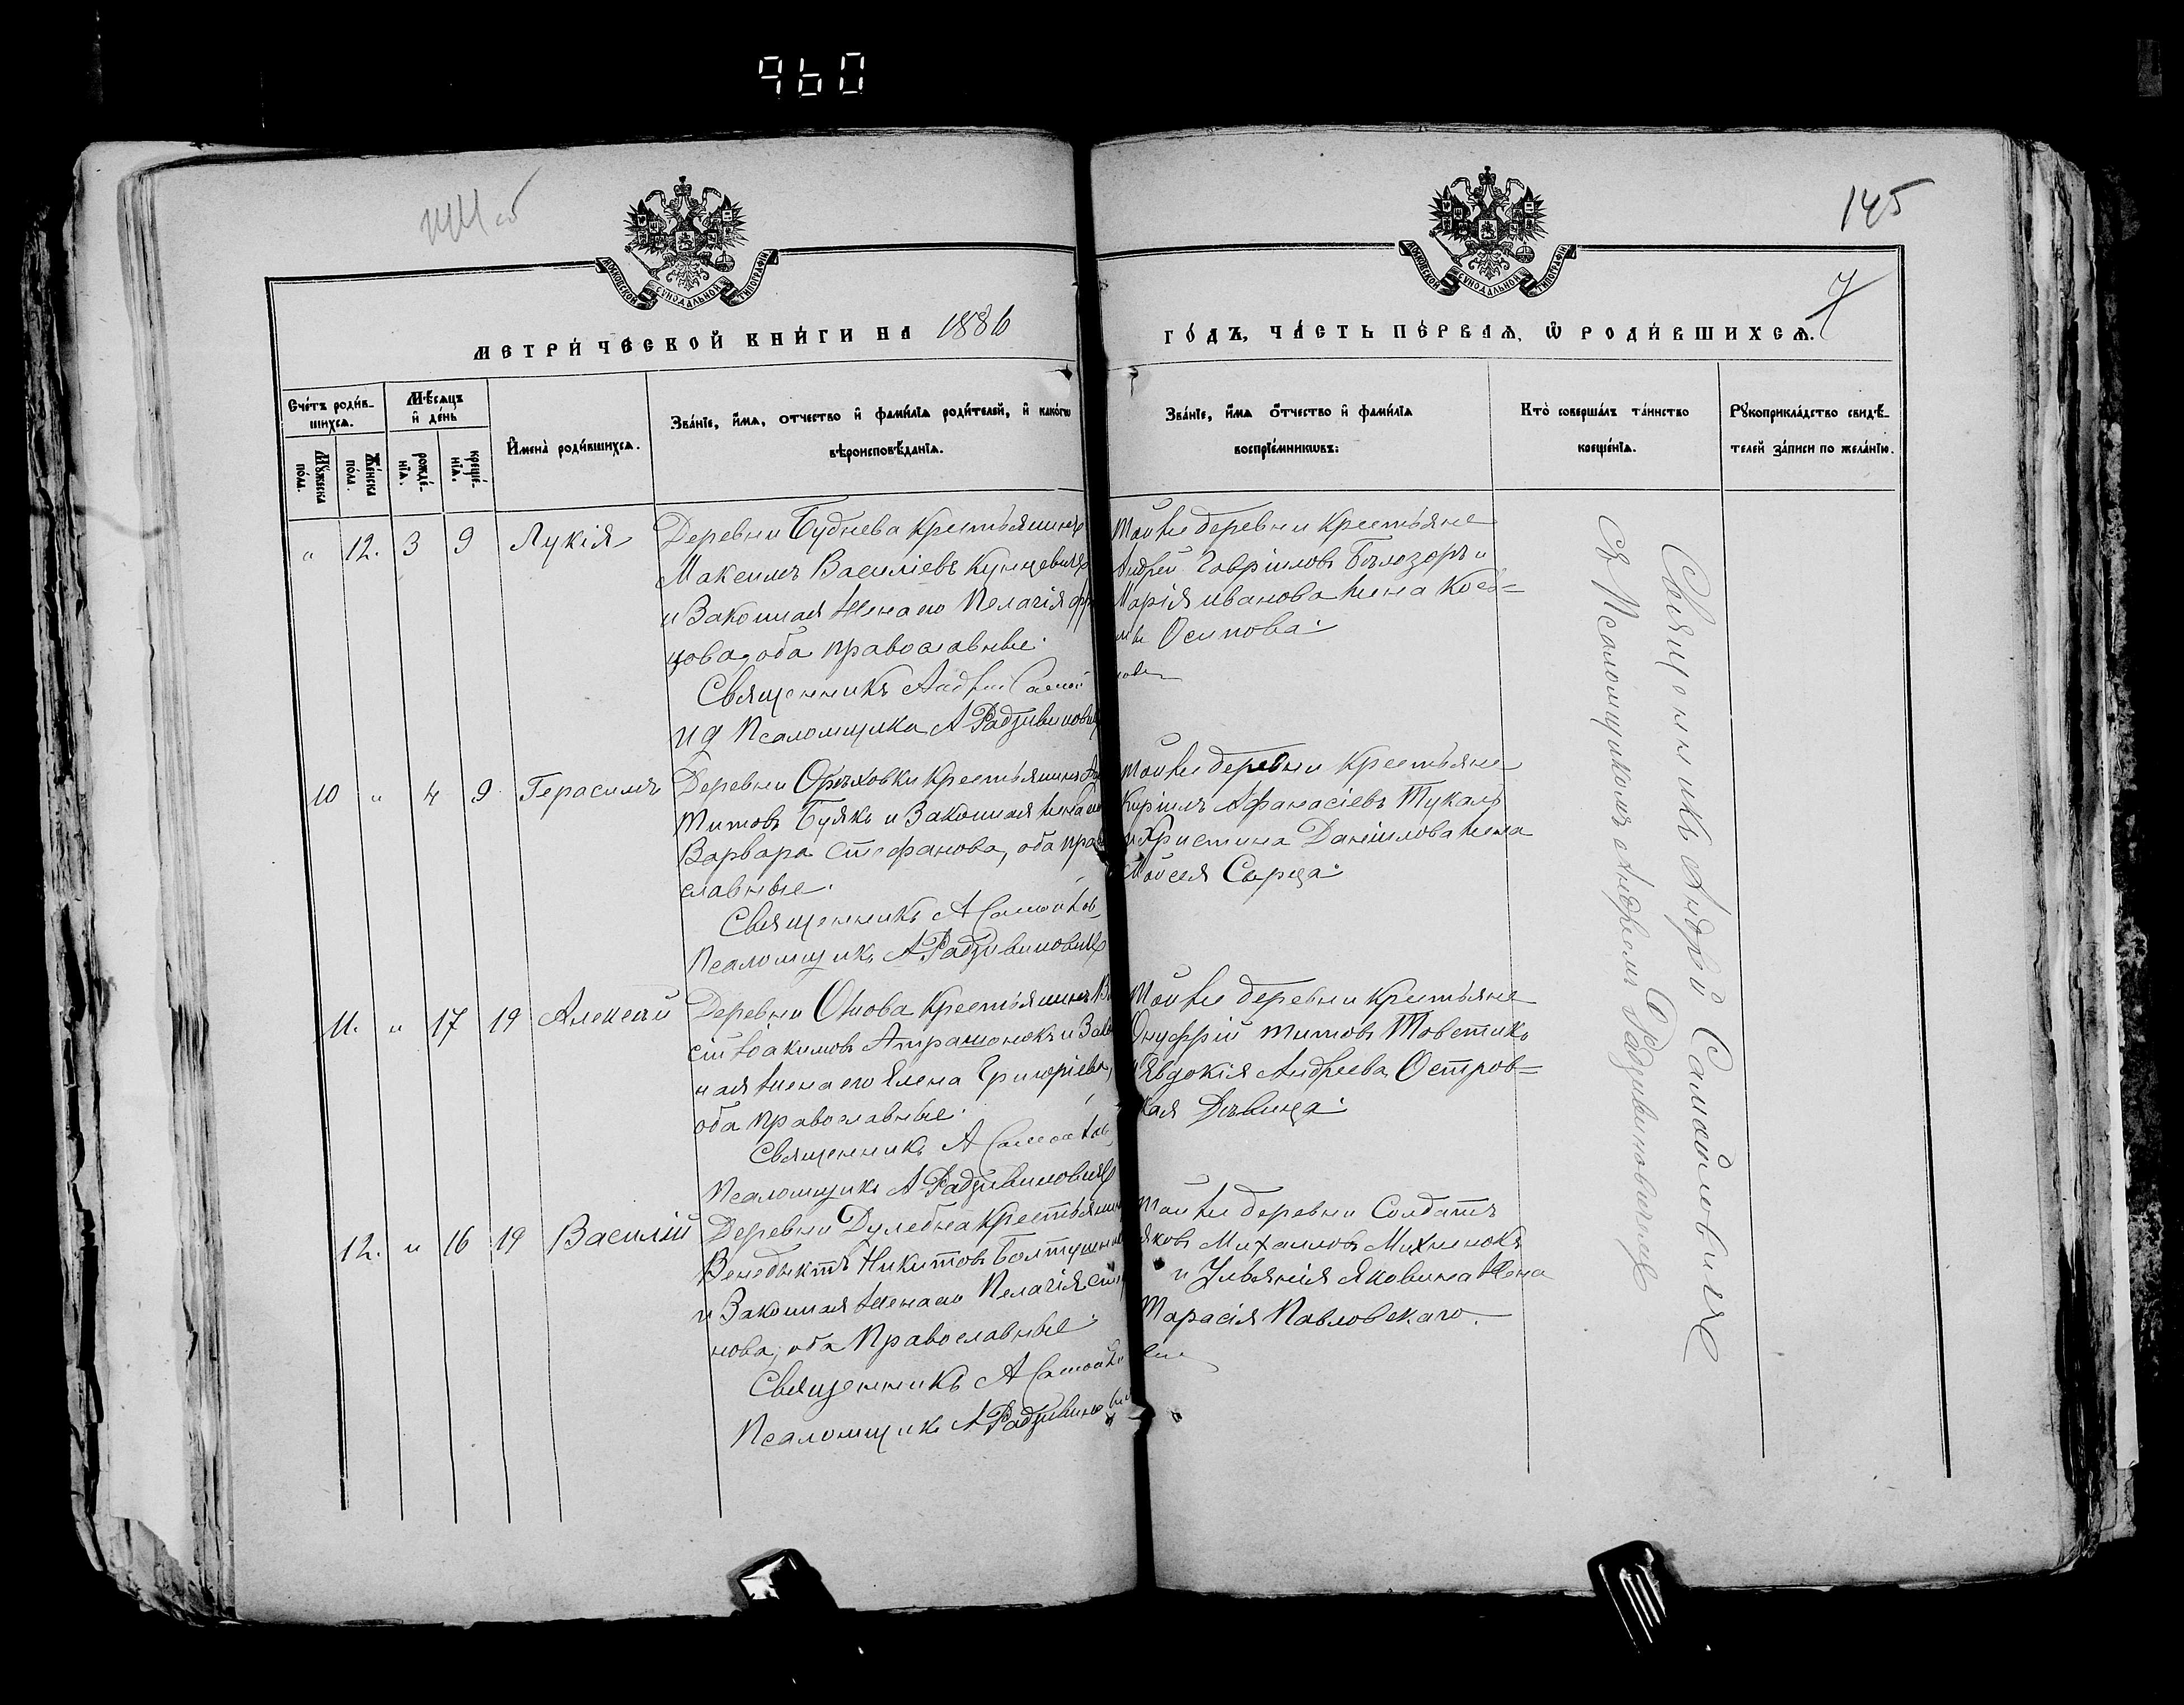 960
145
7
МОСКОВСКОЙ СѴНОДАЛЬНОЙ ТИПОГРАФІИ
МОСКОВСКОЙ СѴНОДАЛЬНОЙ ТИПОГРАФІИ
МЕТРИ́ЧЕСКОЙ КНИ́ГИ НА 1886 ГО́ДЪ, ЧА́СТЬ ПЕ́РВАЯ, Ѡ РОДИ́ВШИХСЯ.
Сче́тъ роди́в-
шихся.
Мѣ́сяцъ
и де́нь
Му́жеска
по́ла.
Же́нска
по́ла.
рожде́-
нія.
креще́-
нія.
Имена̀ роди́вшихся.
Зва́ніе, и́мя, о́тчество и фами́лія роди́телей, и како́гѡ
вѣроисповѣ́данія.
Зва́ніе, и́мя о́тчество и фами́лія
воспріе́мникѡвъ:
Кто̀ соверша́лъ та́инство
креще́нія.
Рꙋкоприкла́дство свидѣ́-
телей за́писи по жела́нію.
" 12. 3 9 Лукія
Деревни Буднева Крестьянинъ
Максимъ Василіевъ Кунцевичъ
и Законная жена его Пелагія
цова, оба православные.
Священникъ Андрей Самой
ИД Псаломщика А Радзивиновичъ
Той же деревни Крестьяне
Андрей Гавріиловъ Бѣлозоръ и
Марія Иванова жена
Осипова.
10 " 4 9 Герасимъ
Деревни Орѣховки Крестьянинъ
Титовъ Буякъ и Законная жена его
Варвара Стефанова, оба право
славные.
Священникъ А Самойлов
Псаломщикъ А Радзивиновичъ
Той же деревни Крестьяне
Киріилъ Афанасіевъ Тукалъ
и Христина Даніилова жена
Моисея Сырца.
11. " 17 19 Алексѣй
Деревни Онова Крестьянинъ Ва
сій Іоакимовъ Атрашонокъ и Закон
ная жена его Елена Григоріева,
оба православные.
Священникъ А Самойлов
Псаломщикъ А Радзивиновичъ
Той же деревни Крестьяне
Онуфрій Титовъ Товстикъ
и Явдокія Андреева Остров=
кая Дѣвица.
12. " 16 19 Василій
Деревни Дулебна Крестьянинъ
Венедыктъ Никитовъ
и Законная жена его Пелагія
нова, оба Православные.
Священникъ А Самойло
Псаломщикъ А Радзивинови
Той же деревни Солдатъ
Яковъ Михаиловъ Михненокъ
и Ульянія Яковина жена
Тарасія Павловскаго.
Священникъ Андрей Самойловичъ
Съ Псаломщикомъ Андреемъ Радзивиновичемъ